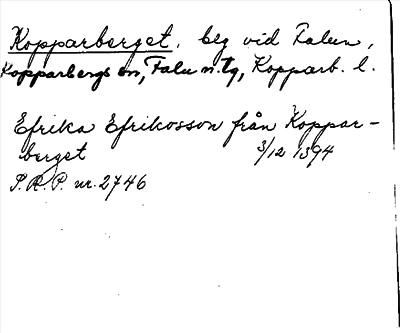 Kopparberget, beg vid Falun,
Kopparbergs sn, Falu n. tg, Kopparb. l.
Efrika Efrikosson från Koppar-
berget 3/12 1394
S.R.P. nr. 2746